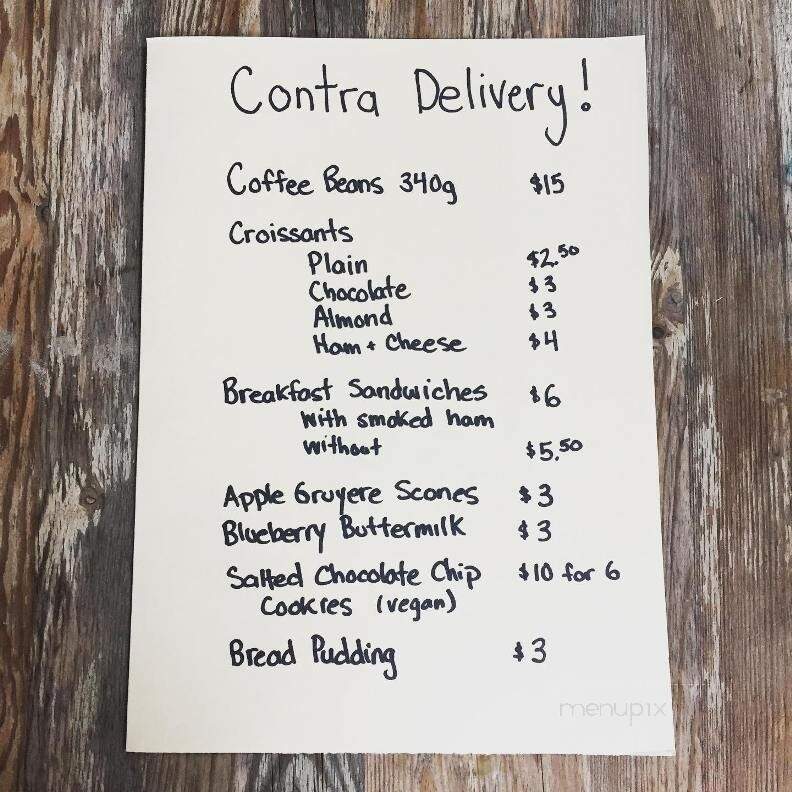 Contra Delivery!
Coffee Beans 340g $15
Croissants
Plain $2.50
Chocolate $3
Almond $3
Ham + Cheese $4
Breakfast Sandwiches $6
with smoked ham
without $5.50
Apple Gruyere Scones $3
Blueberry Buttermilk $3
Salted Chocolate Chip $10 for 6
Cookies (vegan)
Bread Pudding $3
menupix